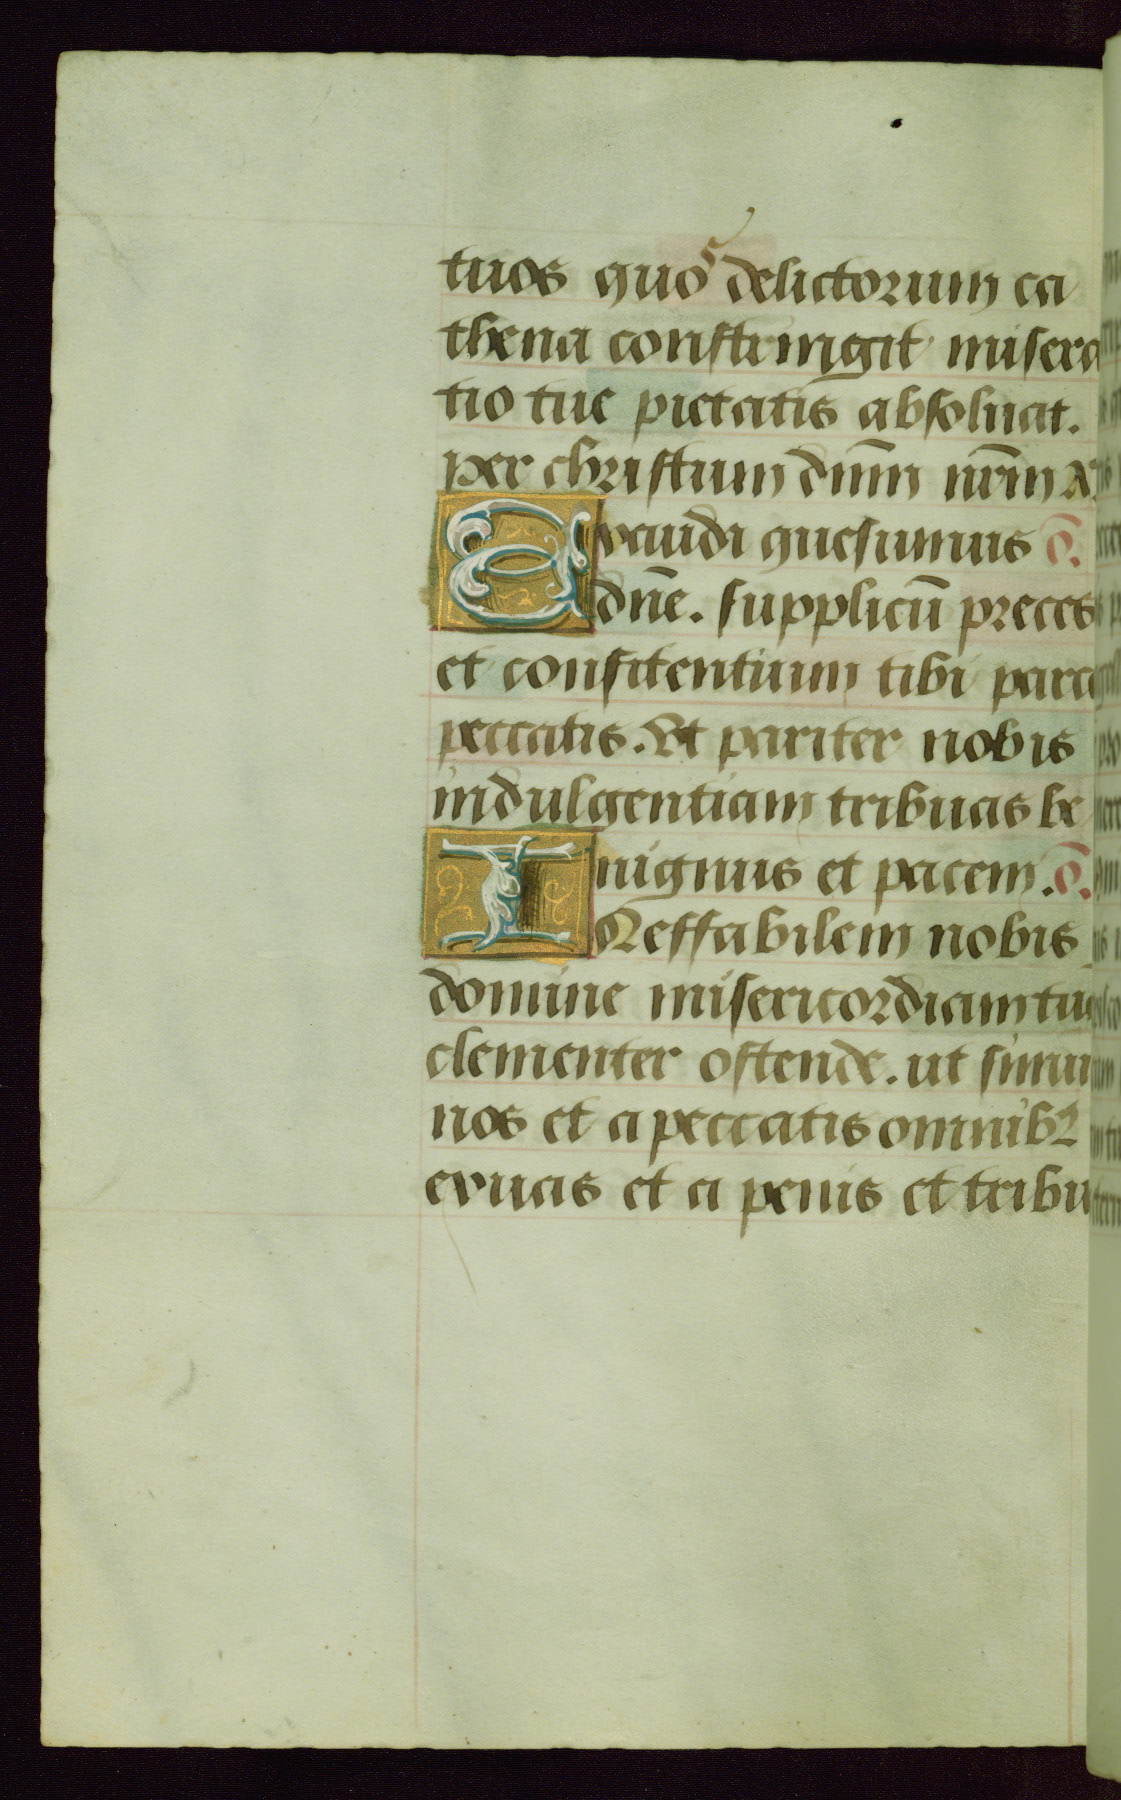 tuos quos delictorum ca
thena constringit misera
tio tue pietatis absoluat.
Per christum dnm nrm A.
Exaudi quesumus o.
dne. supplicu preces
et confitentium tibi parce
peccatis. Et pariter nobis
indulgentiam tribuas be
nignus et pacem. o.
INeffabilem nobis
domine misericordiam tua
clementer ostende. ut simul
nos et a peccatis omnibꝫ
exuas et a penis et tribu